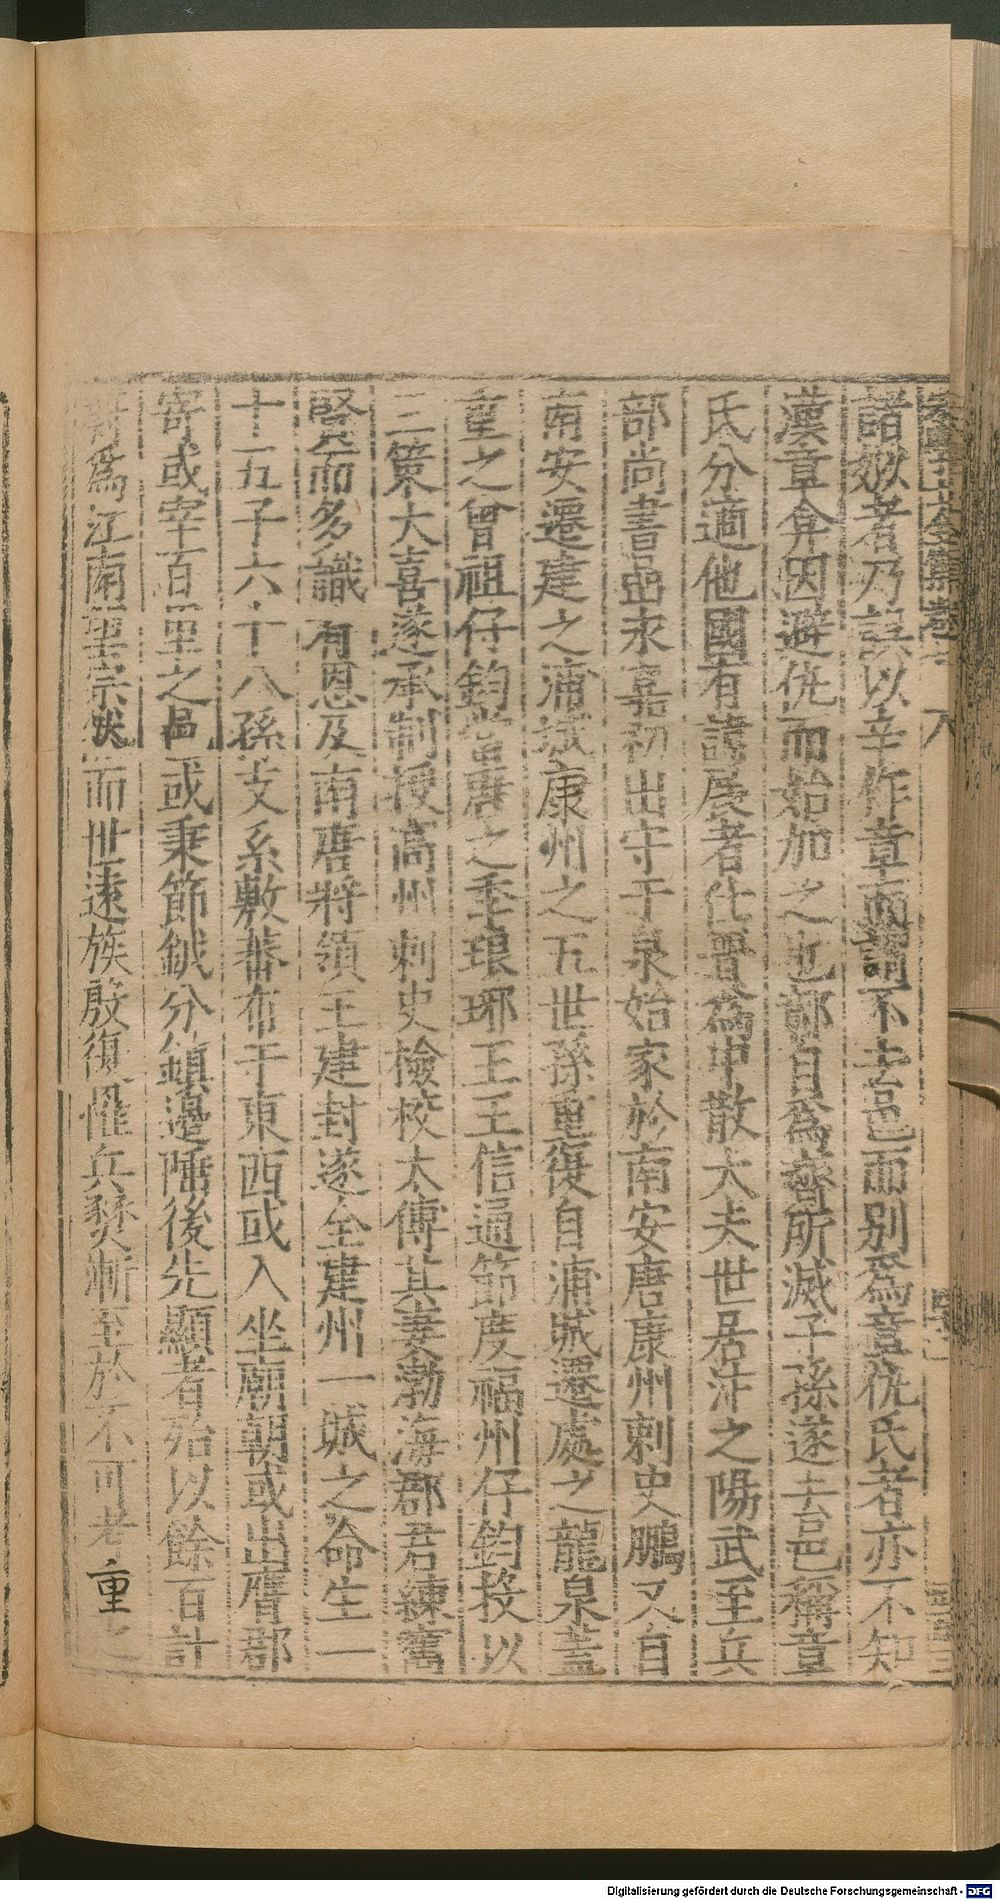 諸娰者乃誤以辛作章而謂不去邑而别爲章仇氏者亦不知
漢章弇因避仇而始加之也鄣自爲齊所滅子孫遂去邑稱章
氏分適他國有諱展者仕晋爲中散大夫世居泮之陽武至兵
部尚書嵒永嘉初出守于泉始家於南安唐康州刺史鵬又自
南安遷建之浦城康州之五世孫重復自浦城還處之龍泉盖
重之曾祖仔鈞當唐之季琅琊王王信通節度福州仔鈞投以
三策大喜遂承制授高州刺史檢校太傅其妻渤海郡君練寯
賢而多識有恩及南唐將領王建封遂全建州一城之命生一
十五子六十八孫支系敷蕃布于東西或入坐廟朝或出膺郡
寄或宰百里之邑或秉節鉞分鎮邊陲後先顯者殆以餘百計
爲江南望宗然而世遠族殷復惟兵燹漸至於不可考重
Digitalisierung gefördert durch die Deutsche Forschungsgemeinschaft - DFG